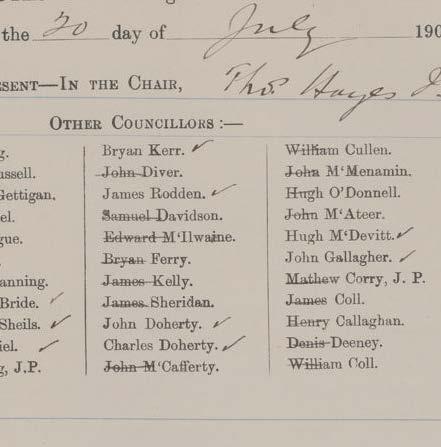 the 20 day of July 190
ESENT—IN THE CHAIR, Thos. Hayes J.
OTHER COUNCILLORS :—
g.
ussell.
Gettigan.
el.
gue.
.
anning.
Bride. ✓
Sheils. ✓
iel. ✓
g, J.P.
Bryan Kerr. ✓
John Diver.
James Rodden. ✓
Samuel Davidson.
Edward M'Ilwaine.
Bryan Ferry.
James Kelly.
James Sheridan.
John Doherty. ✓
Charles Doherty. ✓
John M'Cafferty.
William Cullen.
John M'Menamin.
Hugh O'Donnell.
John M'Ateer.
Hugh M'Devitt. ✓
John Gallagher. ✓
Mathew Corry, J. P.
James Coll.
Henry Callaghan.
Denis Deeney.
William Coll.